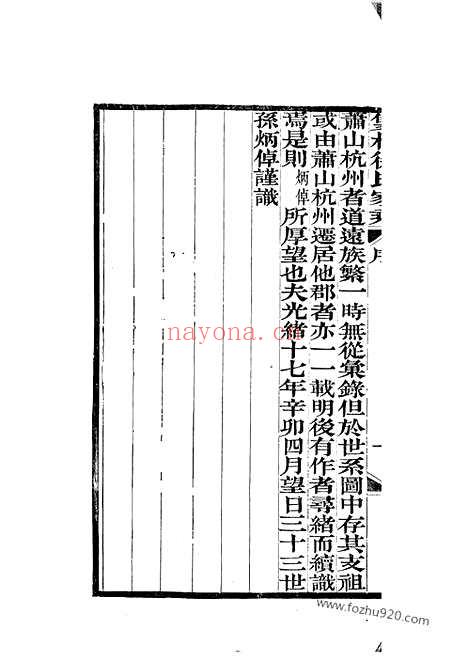 蕭山杭州者道遠族繁一時無從彙錄但於世系圖中存其支祖
或由蕭山杭州遷居他郡者亦一一載明後有作者尋緒而續識
焉是則炳倬所厚望也夫光緒十七年辛卯四月望日三十三世
孫炳倬謹識
nayona.cn
www.fozhu920.com